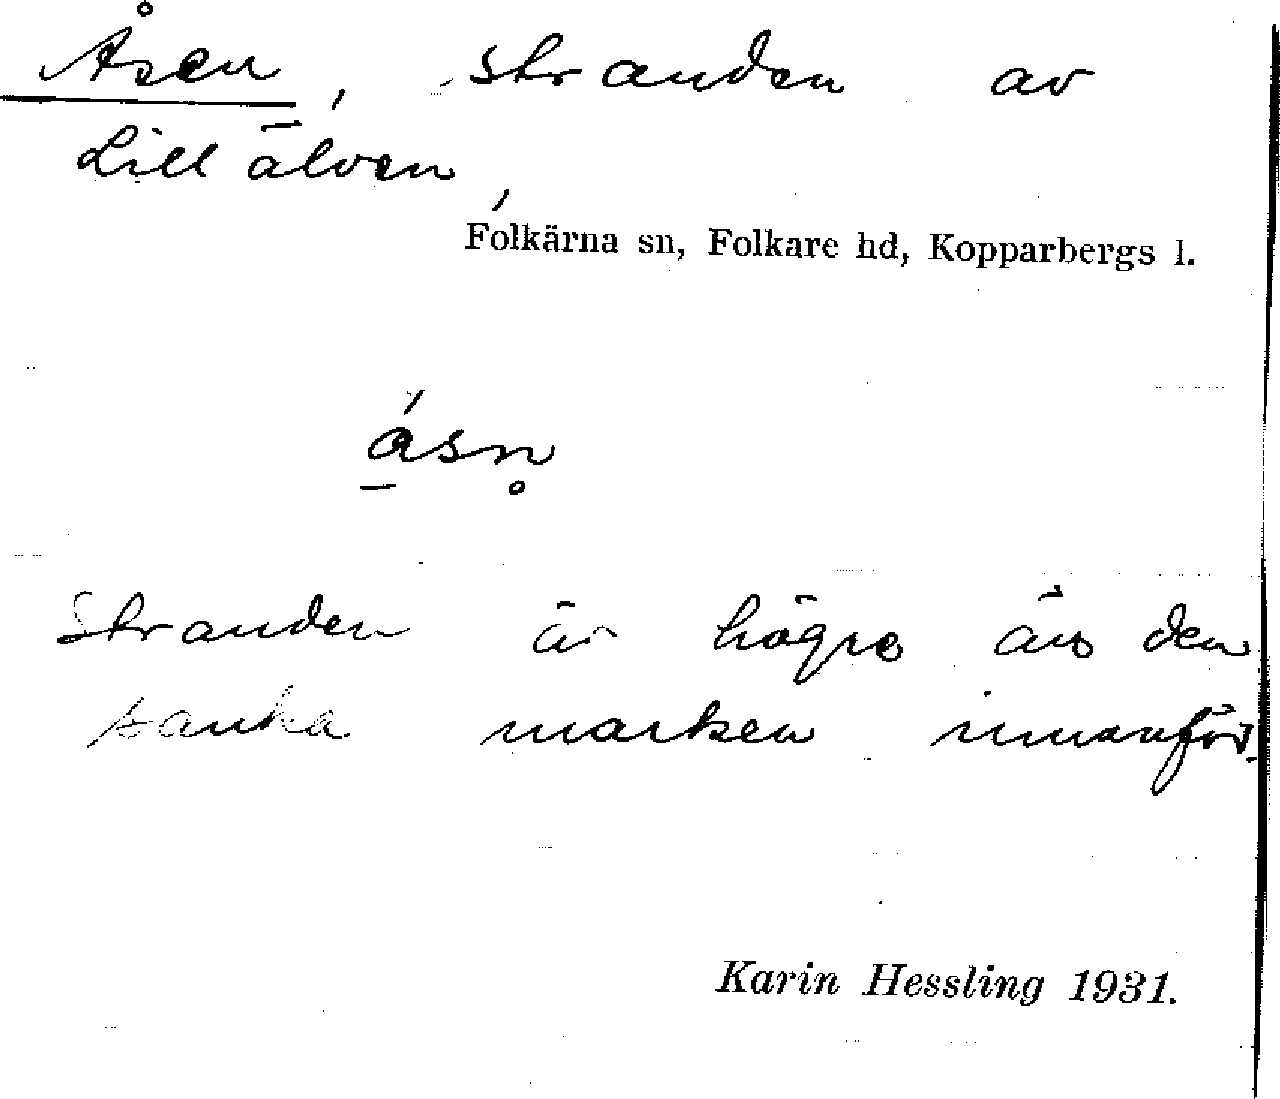 Åsen, stranden av
Lillälven,
Folkärna sn, Folkare hd, Kopparbergs l.
ásn̥
Stranden är högre än den
sanka marken innanför.
Karin Hessling 1931.